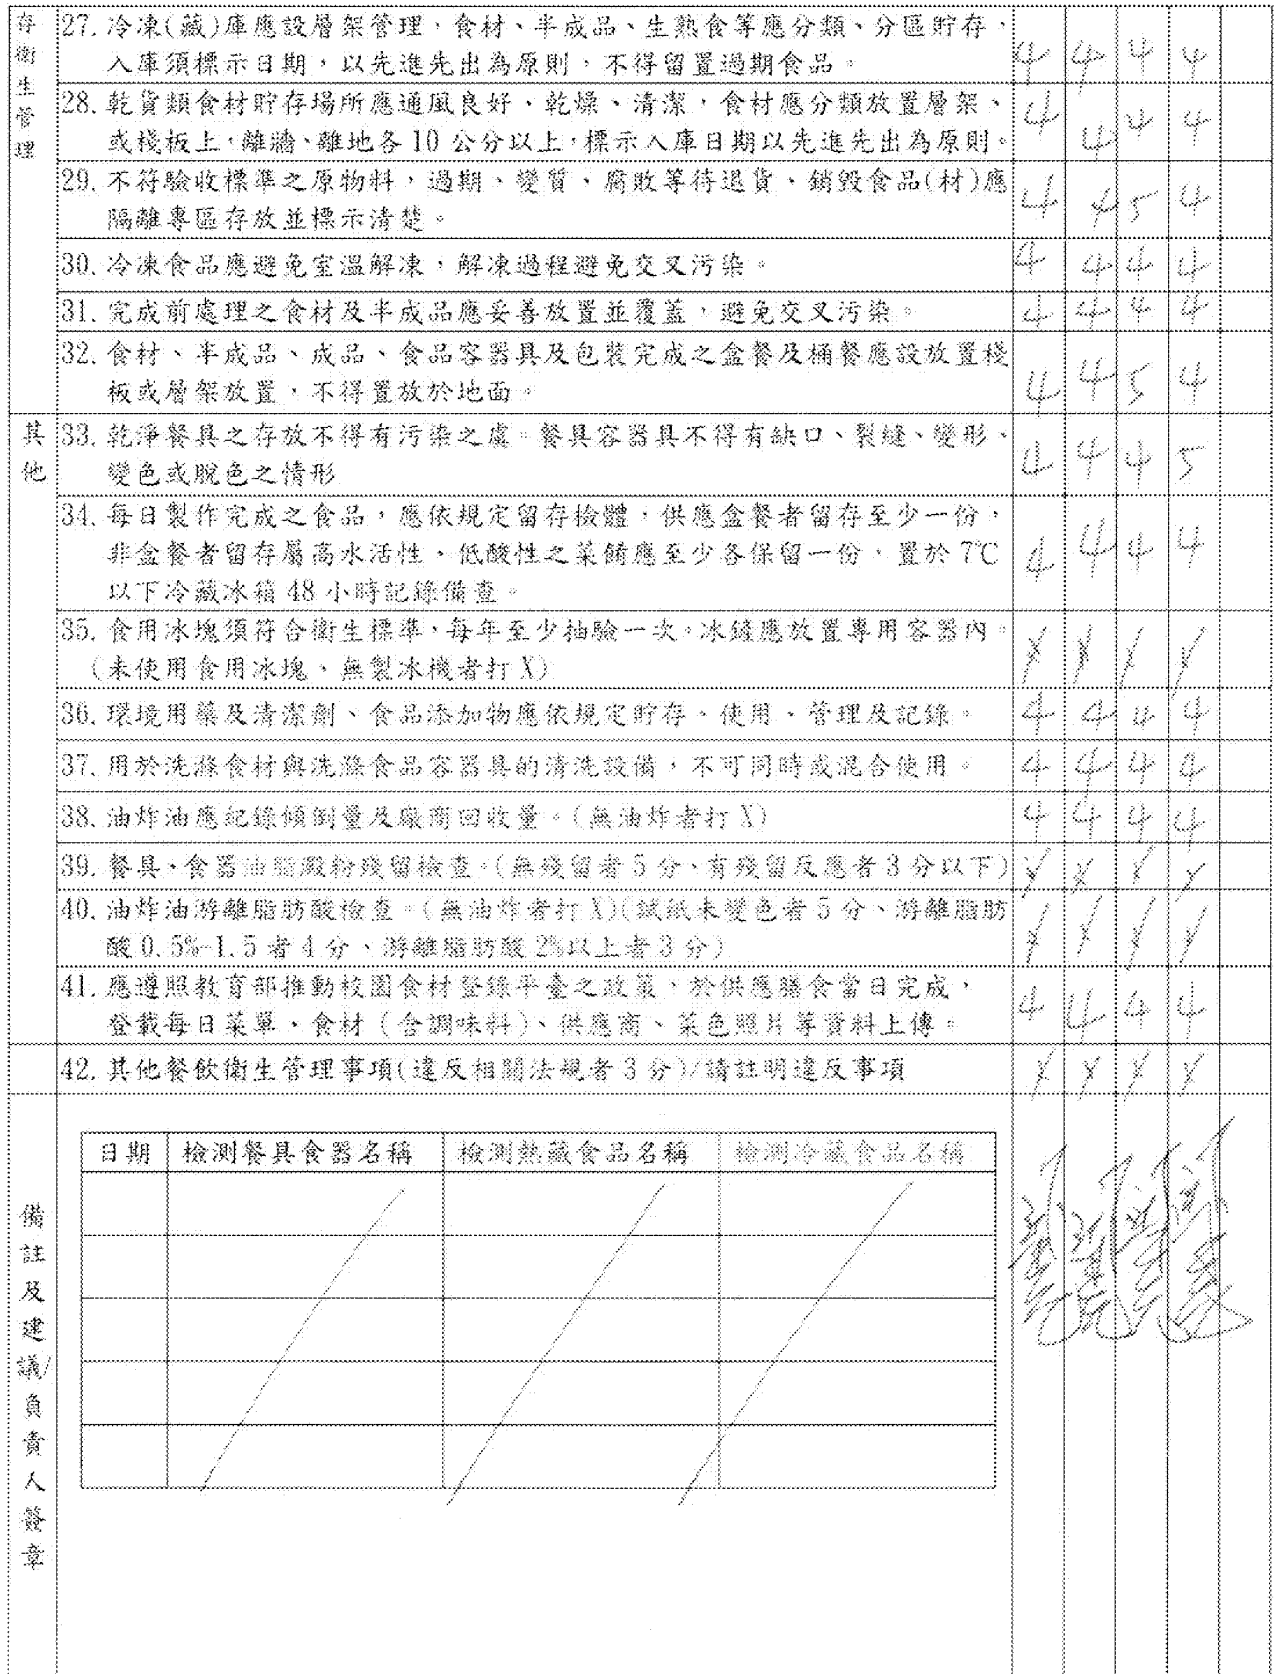 存衛生管理
27. 冷凍(藏)庫應設層架管理，食材、半成品、生熟食等應分類、分區貯存，
入庫須標示日期，以先進先出為原則，不得留置過期食品。 4 4 4 4
28. 乾貨類食材貯存場所應通風良好、乾燥、清潔，食材應分類放置層架、
或棧板上，離牆、離地各10 公分以上，標示入庫日期以先進先出為原則。 4 4 4 4
29. 不符驗收標準之原物料，過期、變質、腐敗等待退貨、銷毀食品(材)應
隔離專區存放並標示清楚。 4 4 5 4
30. 冷凍食品應避免室溫解凍，解凍過程避免交叉污染。 4 4 4 4
31. 完成前處理之食材及半成品應妥善放置並覆蓋，避免交叉污染。 4 4 4 4
32. 食材、半成品、成品、食品容器具及包裝完成之盒餐及桶餐應設放置棧
板或層架放置，不得置放於地面。 4 4 5 4
其他
33. 乾淨餐具之存放不得有污染之虞。餐具容器具不得有缺口、裂縫、變形、
變色或脫色之情形 4 4 4 5
34. 每日製作完成之食品，應依規定留存檢體，供應盒餐者留存至少一份，
非盒餐者留存屬高水活性、低酸性之菜餚應至少各保留一份，置於 7℃
以下冷藏冰箱 48 小時記錄備查。 4 4 4 4
35. 食用冰塊須符合衛生標準，每年至少抽驗一次。冰鏟應放置專用容器內。
(未使用食用冰塊、無製冰機者打 X) X X X X
36. 環境用藥及清潔劑、食品添加物應依規定貯存、使用、管理及記錄。 4 4 4 4
37. 用於洗滌食材與洗滌食品容器具的清洗設備，不可同時或混合使用。 4 4 4 4
38. 油炸油應紀錄傾倒量及廠商回收量。(無油炸者打 X) 4 4 4 4
39. 餐具、食器油脂澱粉殘留檢查。(無殘留者 5 分、有殘留反應者 3 分以下) X X X X
40. 油炸油游離脂肪酸檢查。(無油炸者打 X)(試紙未變色者 5 分、游離脂肪
酸 0.5%-1.5 者 4 分、游離脂肪酸 2%以上者 3 分) X X X X
41. 應遵照教育部推動校園食材登錄平臺之政策，於供應膳食當日完成，
登載每日菜單、食材（含調味料)、供應商、菜色照片等資料上傳。 4 4 4 4
42. 其他餐飲衛生管理事項(違反相關法規者 3 分)/請註明違反事項 X X X X
備註及建議/負責人簽章
日期 檢測餐具食器名稱 檢測熱藏食品名稱 檢測冷藏食品名稱